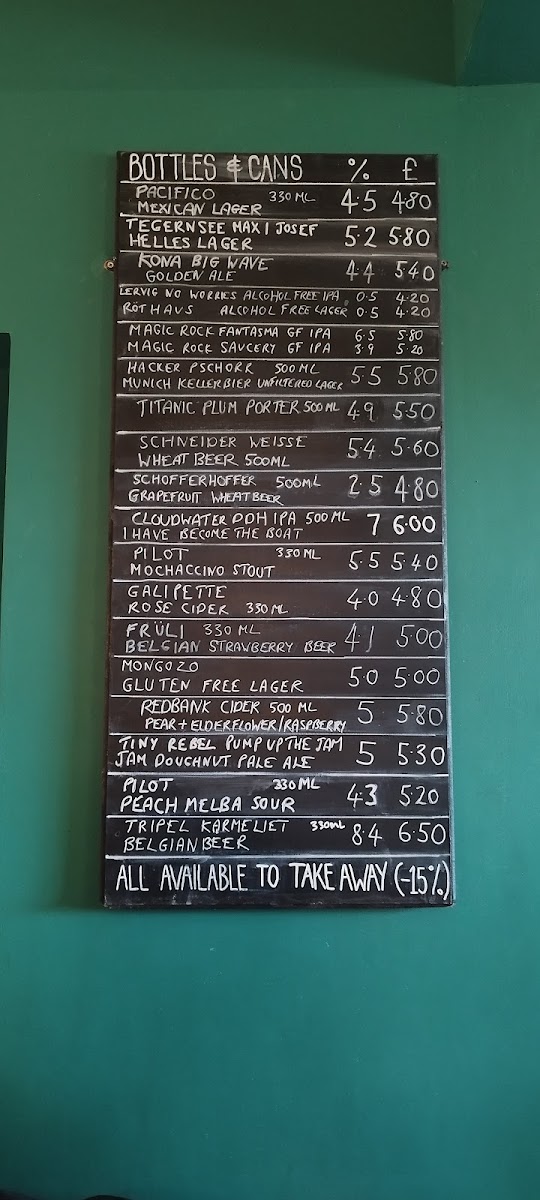 BOTTLES & CANS % £
PACIFICO 330 ML 4.5 4.80
MEXICAN LAGER
TEGERNSEE MAX I JOSEF 5.2 5.80
HELLES LAGER
KONA BIG WAVE 4.4 5.40
GOLDEN ALE
LERVIG NO WORRIES ALCOHOL FREE IPA 0.5 4.20
ROTHAUS ALCOHOL FREE LAGER 0.5 4.20
MAGIC ROCK FANTASMA GF IPA 6.5 5.80
MAGIC ROCK SAUCERY GF IPA 3.9 5.20
HACKER PSCHORR 500 ML 5.5 5.80
MUNICH KELLERBIER UNFILTERED LAGER
TITANIC PLUM PORTER 500 ML 4.9 5.50
SCHNEIDER WEISSE 5.4 5.60
WHEAT BEER 500ML
SCHOFFERHOFFER 500ML 2.5 4.80
GRAPEFRUIT WHEATBEER
CLOUDWATER DDH IPA 500 ML 7 6.00
I HAVE BECOME THE BOAT
PILOT 330 ML 5.5 5.40
MOCHACCINO STOUT
GALIPETTE 4.0 4.80
ROSE CIDER 330 ML
FRÜLI 330 ML 4.1 5.00
BELGIAN STRAWBERRY BEER
MONGOZO 5.0 5.00
GLUTEN FREE LAGER
REDBANK CIDER 500 ML 5 5.80
PEAR + ELDERFLOWER/RASPBERRY
TINY REBEL PUMP UP THE JAM 5 5.30
JAM DOUGHNUT PALE ALE
PILOT 330ML 4.3 5.20
PEACH MELBA SOUR
TRIPEL KARMELIET 330ML 8.4 6.50
BELGIAN BEER
ALL AVAILABLE TO TAKE AWAY (-15%)